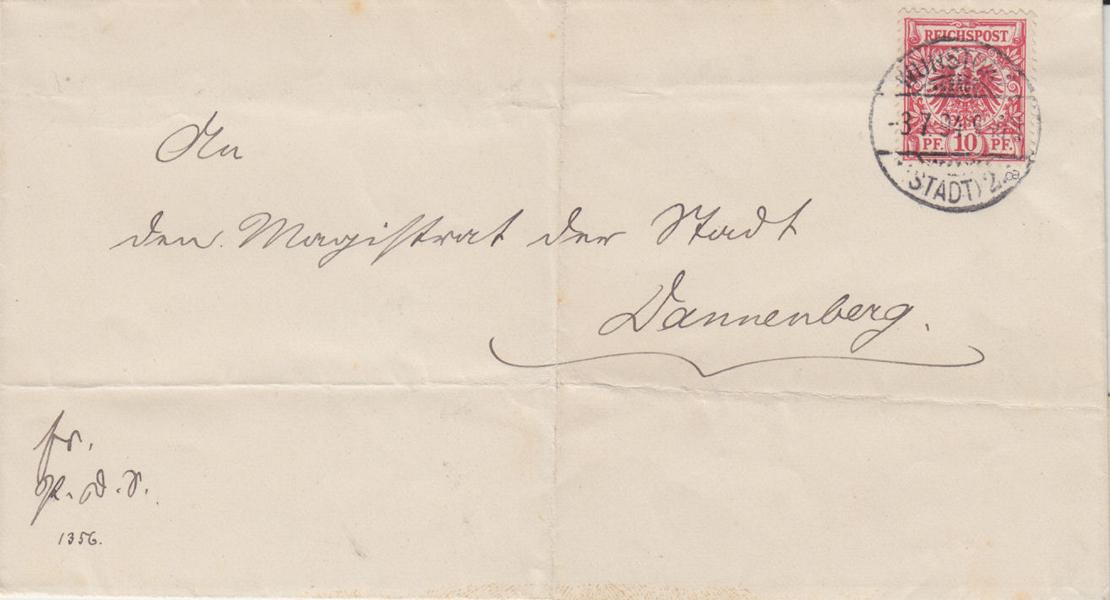 REICHSPOST
PF. 10 PF.
-3 7 94
(STADT) 2
An
den Magistrat der Stadt
Dannenberg.
fr.
1356.